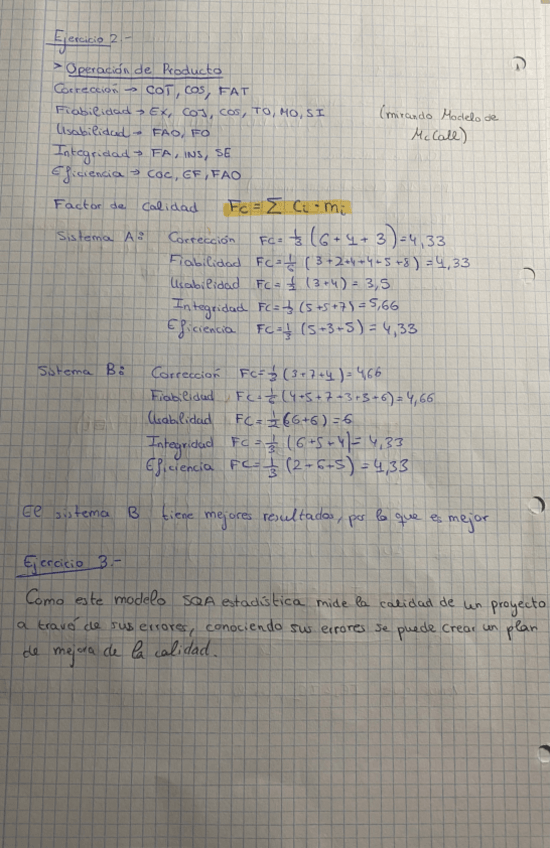 Ejercicio 2.-
> Operación de Producto
Corrección → COT, COS, FAT
Fiabilidad → EX, COT, COS, TO, MO, SI (mirando Modelo de
Usabilidad → FAO, FO McCall)
Integridad → FA, INS, SE
Eficiencia → COC, EF, FAO
Factor de calidad Fc = Σ Ci · mi
Sistema A: Corrección FC = 1/3 (6+4+3) = 4,33
Fiabilidad FC = 1/6 (3+2+4+4+5+8) = 4,33
Usabilidad FC = 1/2 (3+4) = 3,5
Integridad FC = 1/3 (5+5+7) = 5,66
Eficiencia FC = 1/3 (5+3+5) = 4,33
Sistema B: Corrección FC = 1/3 (3+7+4) = 4,66
Fiabilidad FC = 1/6 (4+5+7+3+3+6) = 4,66
Usabilidad FC = 1/2 (6+6) = 6
Integridad FC = 1/3 (6+5+4) = 4,33
Eficiencia FC = 1/3 (2+6+5) = 4,33
El sistema B tiene mejores resultados, por lo que es mejor
Ejercicio 3.-
Como este modelo SQA estadística mide la calidad de un proyecto
a través de sus errores, conociendo sus errores se puede crear un plan
de mejora de la calidad.